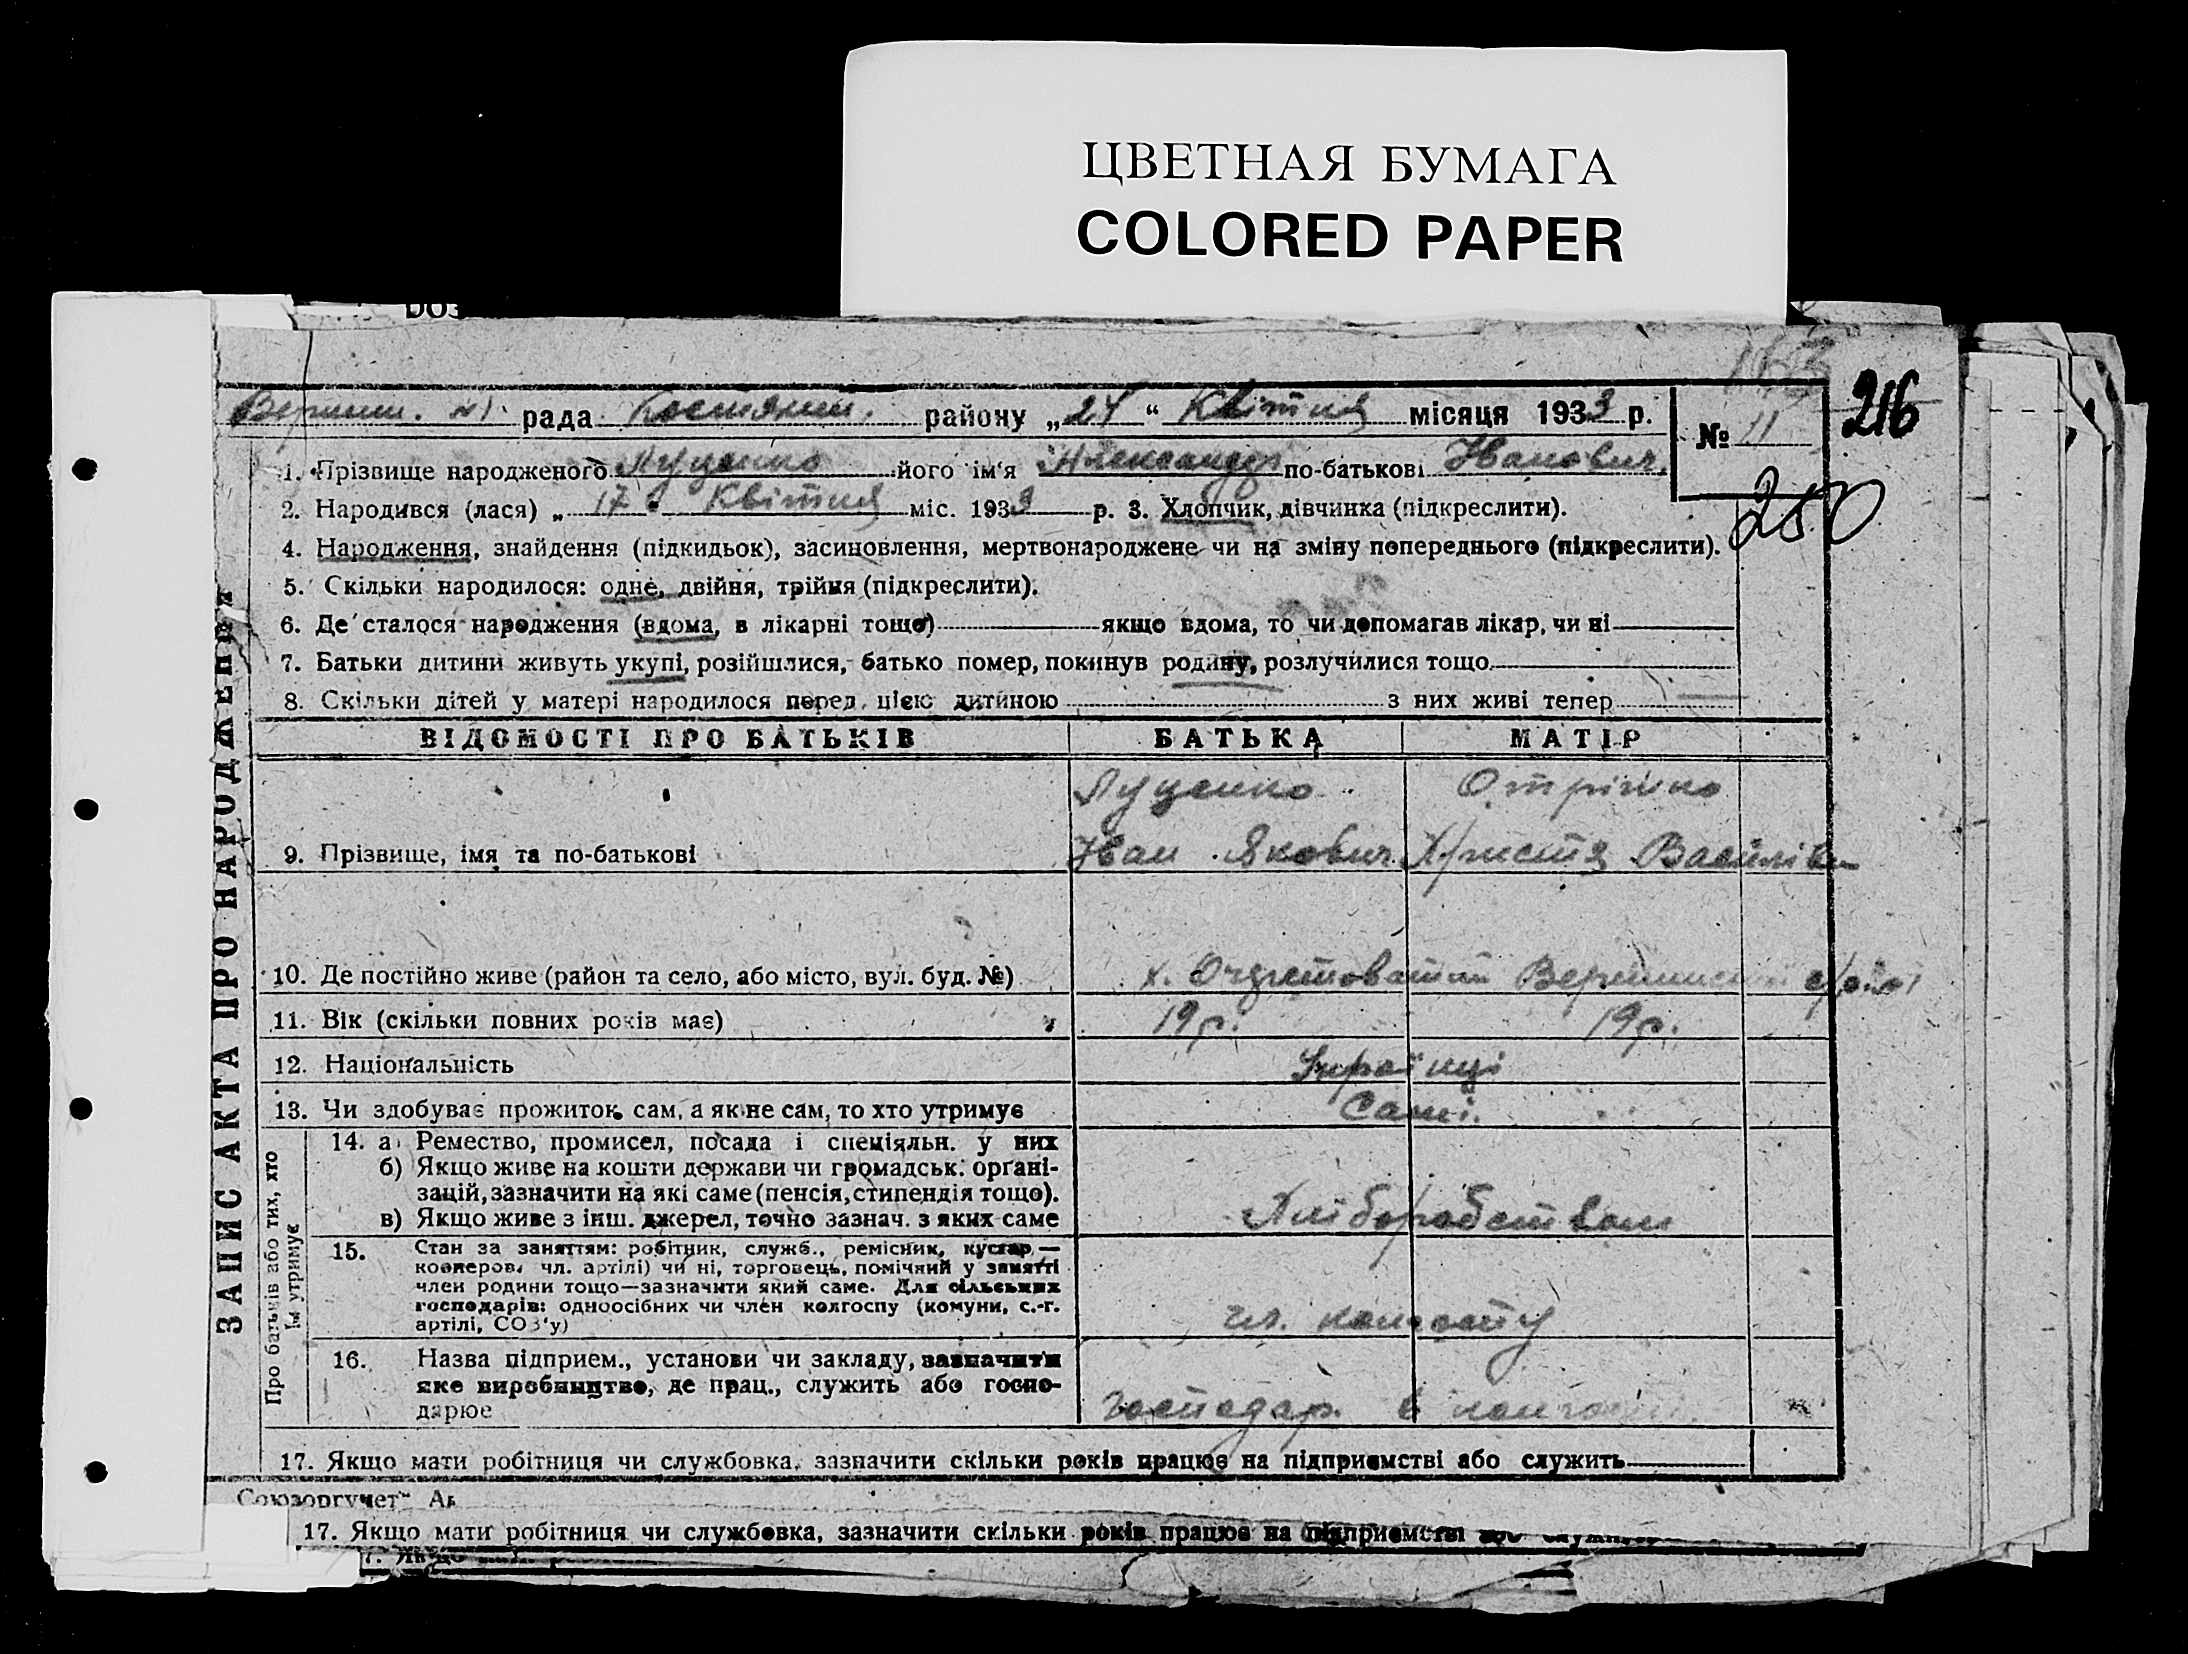 ЦВЕТНАЯ БУМАГА
COLORED PAPER
216
рада району „24“ Квітня місяця 1933 р.
№ 11
250
1. Прізвище народженого Луценко його ім'я Александр по-батькові Іванович
2. Народився (лася) „17 Квітня міс. 1933 р. 3. Хлопчик, дівчинка (підкреслити).
4. Народження, знайдення (підкидьок), засиновлення, мертвонароджене чи на зміну попереднього (підкреслити).
5. Скільки народилося: одне, двійня, трійня (підкреслити).
6. Де сталося народження (вдома, в лікарні тощо) якщо вдома, то чи допомагав лікар, чи ні
7. Батьки дитини живуть укупі, розійшлися, батько помер, покинув родину, розлучилися тощо
8. Скільки дітей у матері народилося перед цією дитиною з них живі тепер
ЗАПИС АКТА ПРО НАРОДЖЕННЯ
ВІДОМОСТІ ПРО БАТЬКІВ БАТЬКА МАТІР
Луценко
9. Прізвище, імя та по-батькові Іван Якович Христя Василівн
10. Де постійно живе (район та село, або місто, вул. буд. №) х.
11. Вік (скільки повних років має) 19 р. 19 р.
12. Національність Українці
13. Чи здобуває прожиток сам, а як не сам, то хто утримує Самі.
Про батьків або тих, хто
їм утримує
14. а Ремество, промисел, посада і спеціяльн. у них
б) Якщо живе на кошти держави чи громадськ. органі-
зацій, зазначити на які саме (пенсія, стипендія тощо).
в) Якщо живе з інш. джерел, точно зазнач. з яких саме Хліборобством
15. Стан за заняттям: робітник, служб., ремісник, кустар,—
кооперов. чл. артілі) чи ні, торговець, помічний у занятті
член родини тощо—зазначити який саме. Для сільських
господарів: одноосібних чи член колгоспу (комуни, с.-г.
артілі, СОЗ'у) чл. колгоспу
16. Назва підприєм., установи чи закладу, зазначити
яке виробництво, де прац., служить або госпо-
дарює господар. в
17. Якщо мати робітниця чи службовка, зазначити скільки років працює на підприємстві або служить
Союзоргучет"
17. Якщо мати робітниця чи службовка, зазначити скільки років працює на підприємстві